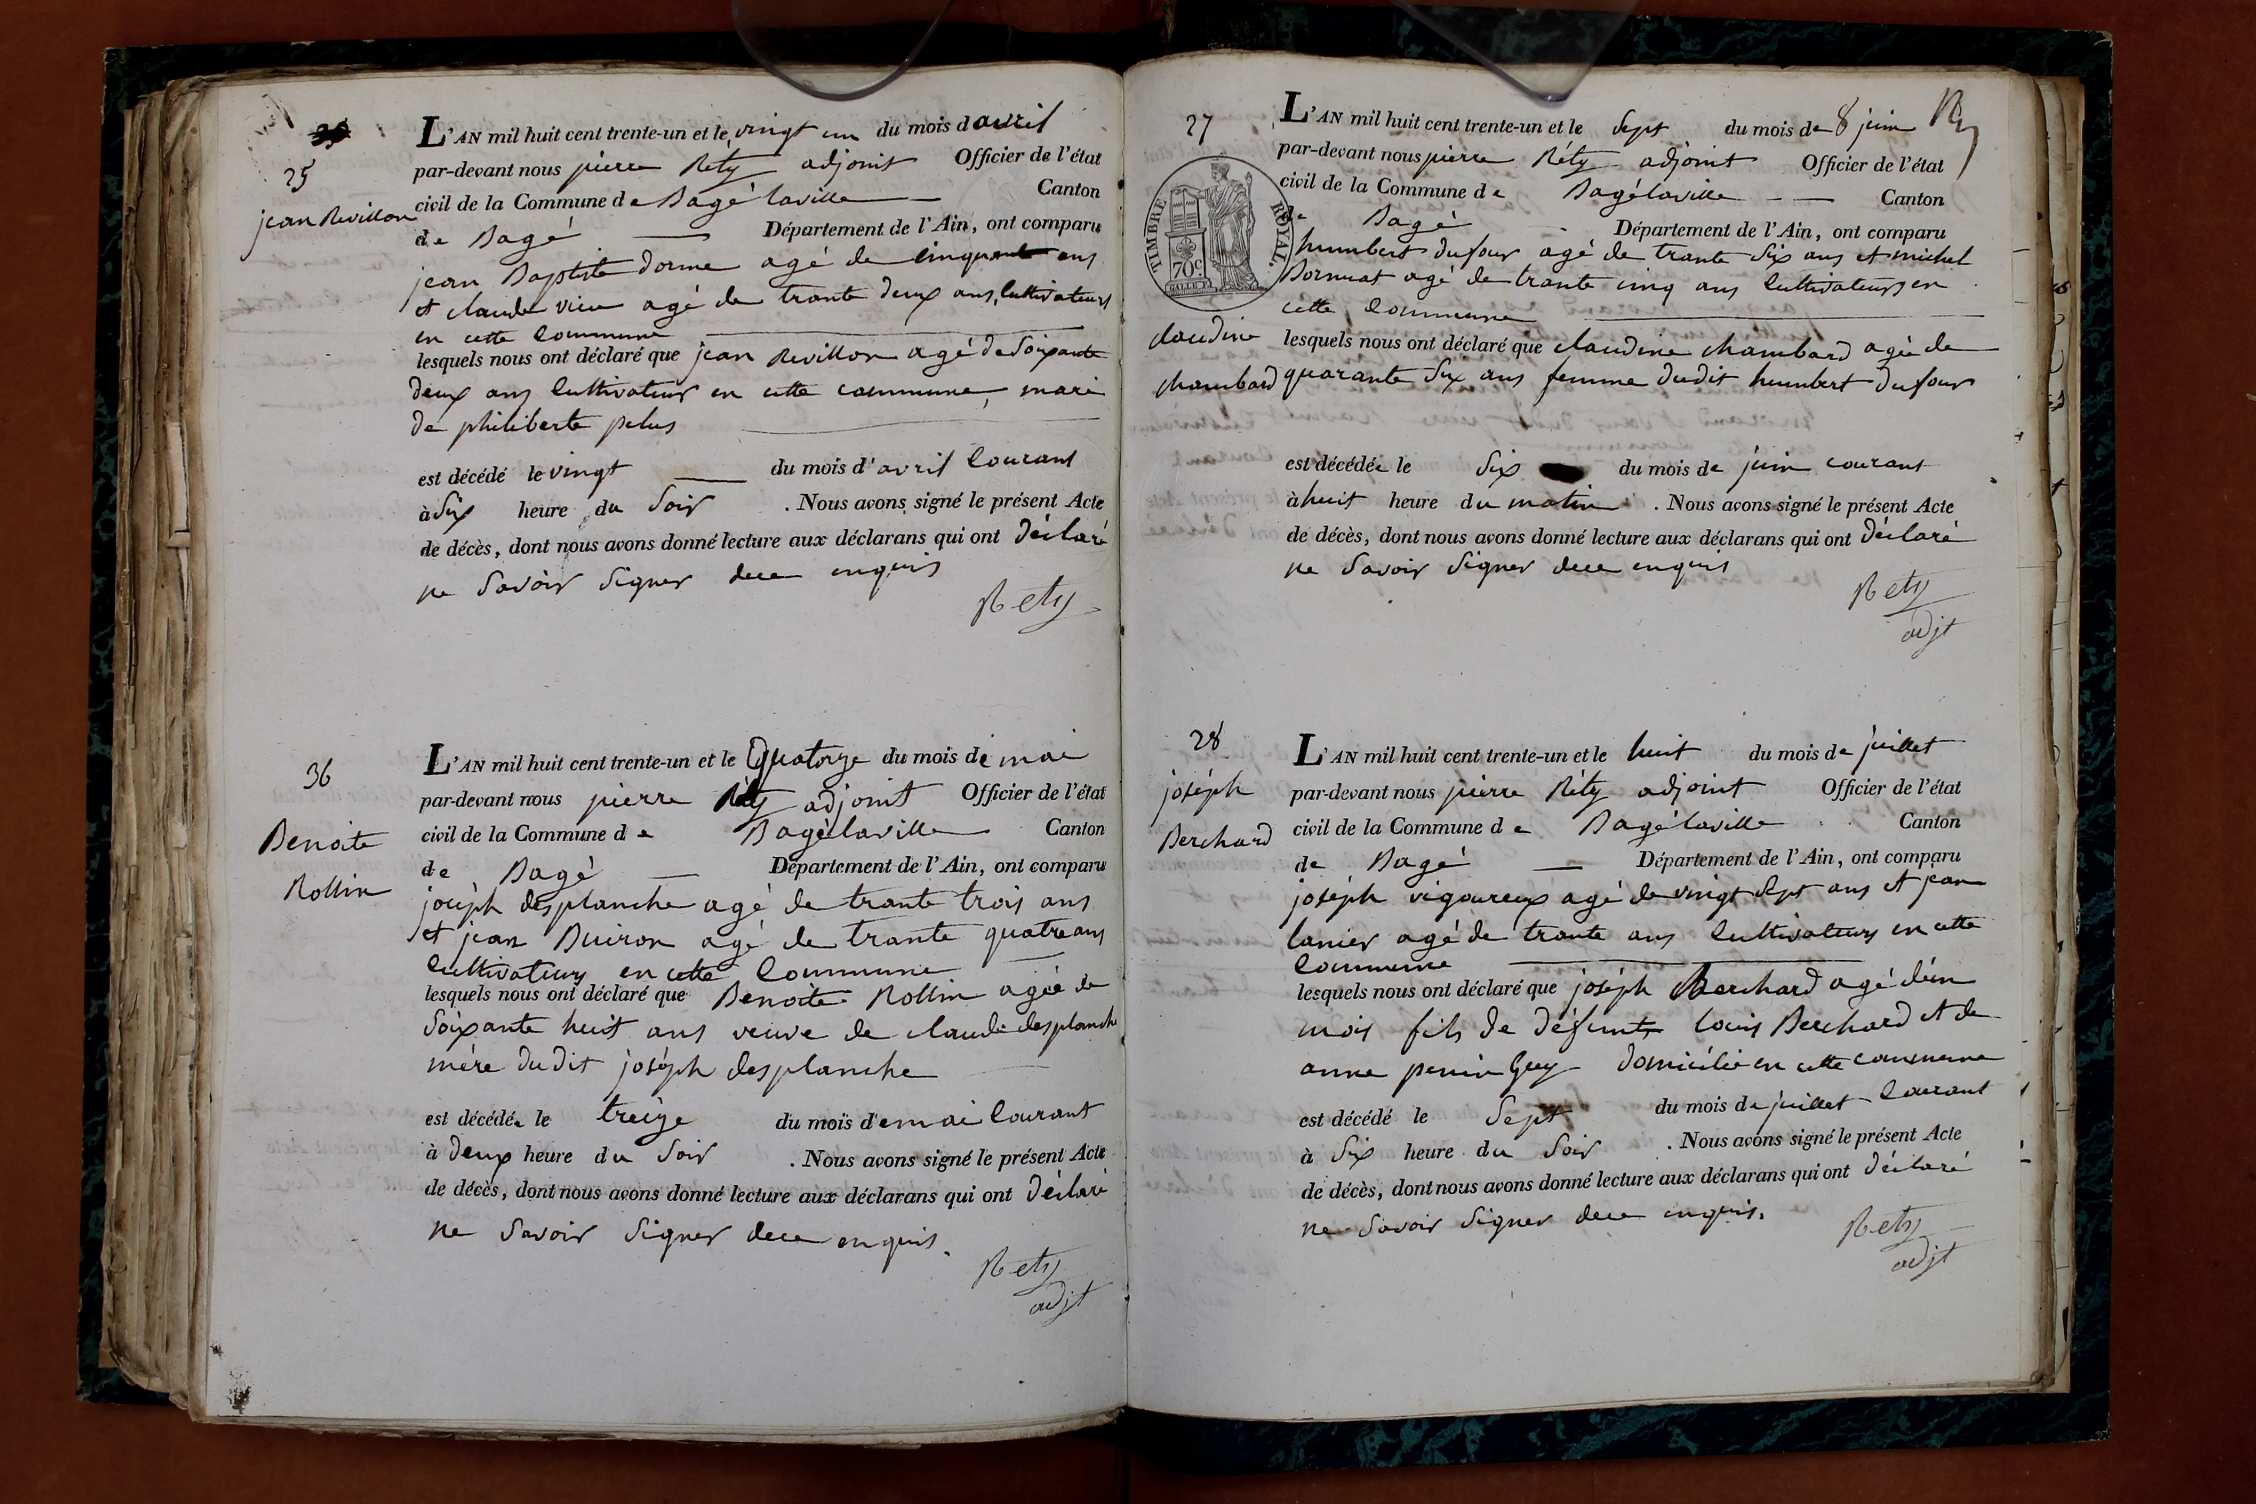 25
jean Revillon
L'AN mil huit cent trente-un et le vingt un du mois d avril
par-devant nous pierre Réty adjoint Officier de l'état
civil de la Commune de Bagé laville Canton
de Bagé Département de l'Ain, ont comparu
jean Baptiste dorme agé de cinquante ans
et claude agé de trante deux ans, Cultivateurs
en cette Commune
lesquels nous ont déclaré que jean Revillon agé de Soixante
deux ans Cultivateur en cette commune, mari
de philiberte pelus
est décédé le vingt du mois d'avril Courant
à Six heure du Soir . Nous avons signé le présent Acte
de décès, dont nous avons donné lecture aux déclarans qui ont déclaré
ne Savoir Signer dece enquis
Rety
36
Benoite
Rollin
L'AN mil huit cent trente-un et le Quatorze du mois de mai
par-devant nous pierre Réty adjoint Officier de l'état
civil de la Commune de Bagélaville Canton
de Bagé Département de l'Ain, ont comparu
joséph desplanche agé de trante trois ans
et jean Buiron agé de trante quatre ans
Cultivateurs en cette Commune
lesquels nous ont déclaré que Benoite Rollin agée de
Soixante huit ans veuve de claude desplanche
mére dudit joséph desplanche
est décédée le treize du mois de mai Courant
à deux heure du Soir . Nous avons signé le présent Acte
de décès, dont nous avons donné lecture aux déclarans qui ont déclaré
ne Savoir Signer dece enquis.
Rety
adjt
27
TIMBRE ROYAL.
70c
L'AN mil huit cent trente-un et le Sept du mois de juin
par-devant nous pierre Réty adjoint Officier de l'état
civil de la Commune de Bagélaville Canton
de Bagé Département de l'Ain, ont comparu
humbert dufour agé de trante Six ans et michel
Bornuat agé de trante cinq ans Cultivateurs en
cette Commune
claudine
chambard
lesquels nous ont déclaré que claudine chambard agée de
quarante Six ans femme dudit humbert dufour
est décédée le Six du mois de juin courant
à huit heure du matin . Nous avons signé le présent Acte
de décès, dont nous avons donné lecture aux déclarans qui ont déclaré
ne Savoir Signer dece enquis
Rety
adjt
28
joséph
Berchard
L'AN mil huit cent trente-un et le huit du mois de juillet
par-devant nous pierre Réty adjoint Officier de l'état
civil de la Commune de Bagélaville Canton
de Bagé Département de l'Ain, ont comparu
joséph vigoureux agé de vingt Sept ans et jean
lanier agé de trante ans Cultivateurs en cette
Commune
lesquels nous ont déclaré que joséph Berchard agé d'un
mois fils de défunt louis Berchard et de
anne Guy domicilié en cette commune
est décédé le Sept du mois de juillet Courant
à Six heure du Soir . Nous avons signé le présent Acte
de décès, dont nous avons donné lecture aux déclarans qui ont déclaré
ne Savoir Signer dece enquis.
Rety
adjt